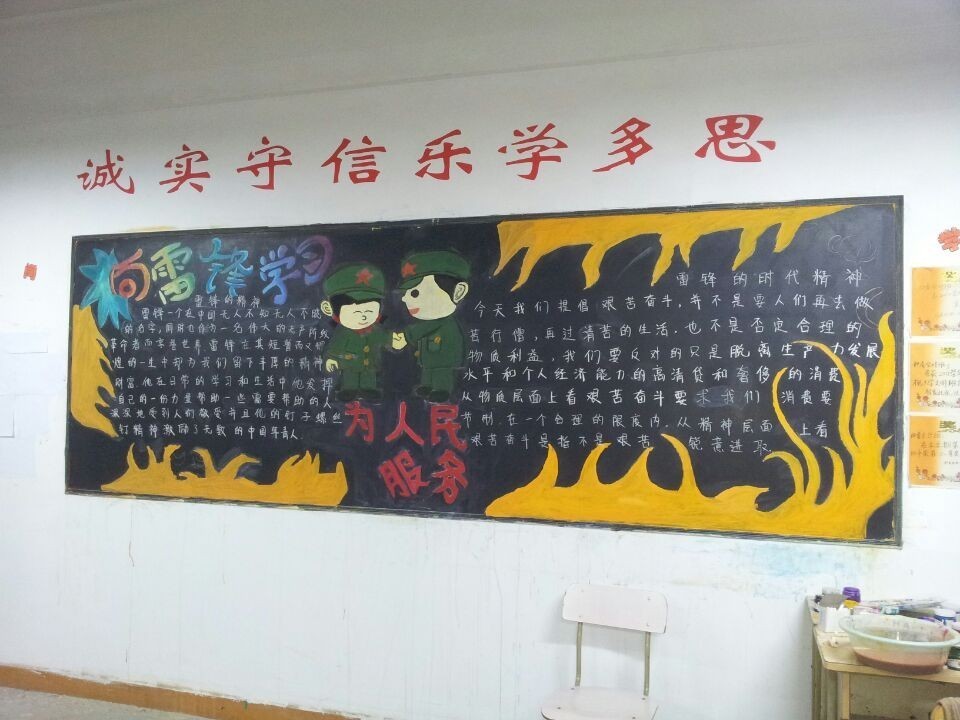 诚实守信乐学多思
向雷锋学习
雷锋的精神
雷锋一个在中国无人不知无人不晓
的名字,同时也作为一名伟大的无产阶级
革命者而享誉世界雷锋在其短暂而又辉
煌的一生中却为我们留下丰厚的精神
财富.他在日常的学习和生活中他发挥
自己的一份力量帮助一些需要帮助的人
深深地受到人们敬爱并且他的钉子螺丝
钉精神激励了无数的中国年青人.
为人民
服务
雷锋的时代精神
今天我们提倡艰苦奋斗,并不是要人们再去做
苦行僧,再过清苦的生活.也不是否定合理的
物质利益,我们要反对的只是脱离生产力发展
水平和个人经济能力的高消费和奢侈的消费
从物质层面上看艰苦奋斗要求我们消费要
节制.在一个合理的限度内.从精神层面上看
艰苦奋斗是指不畏艰苦 锐意进取
奖
奖